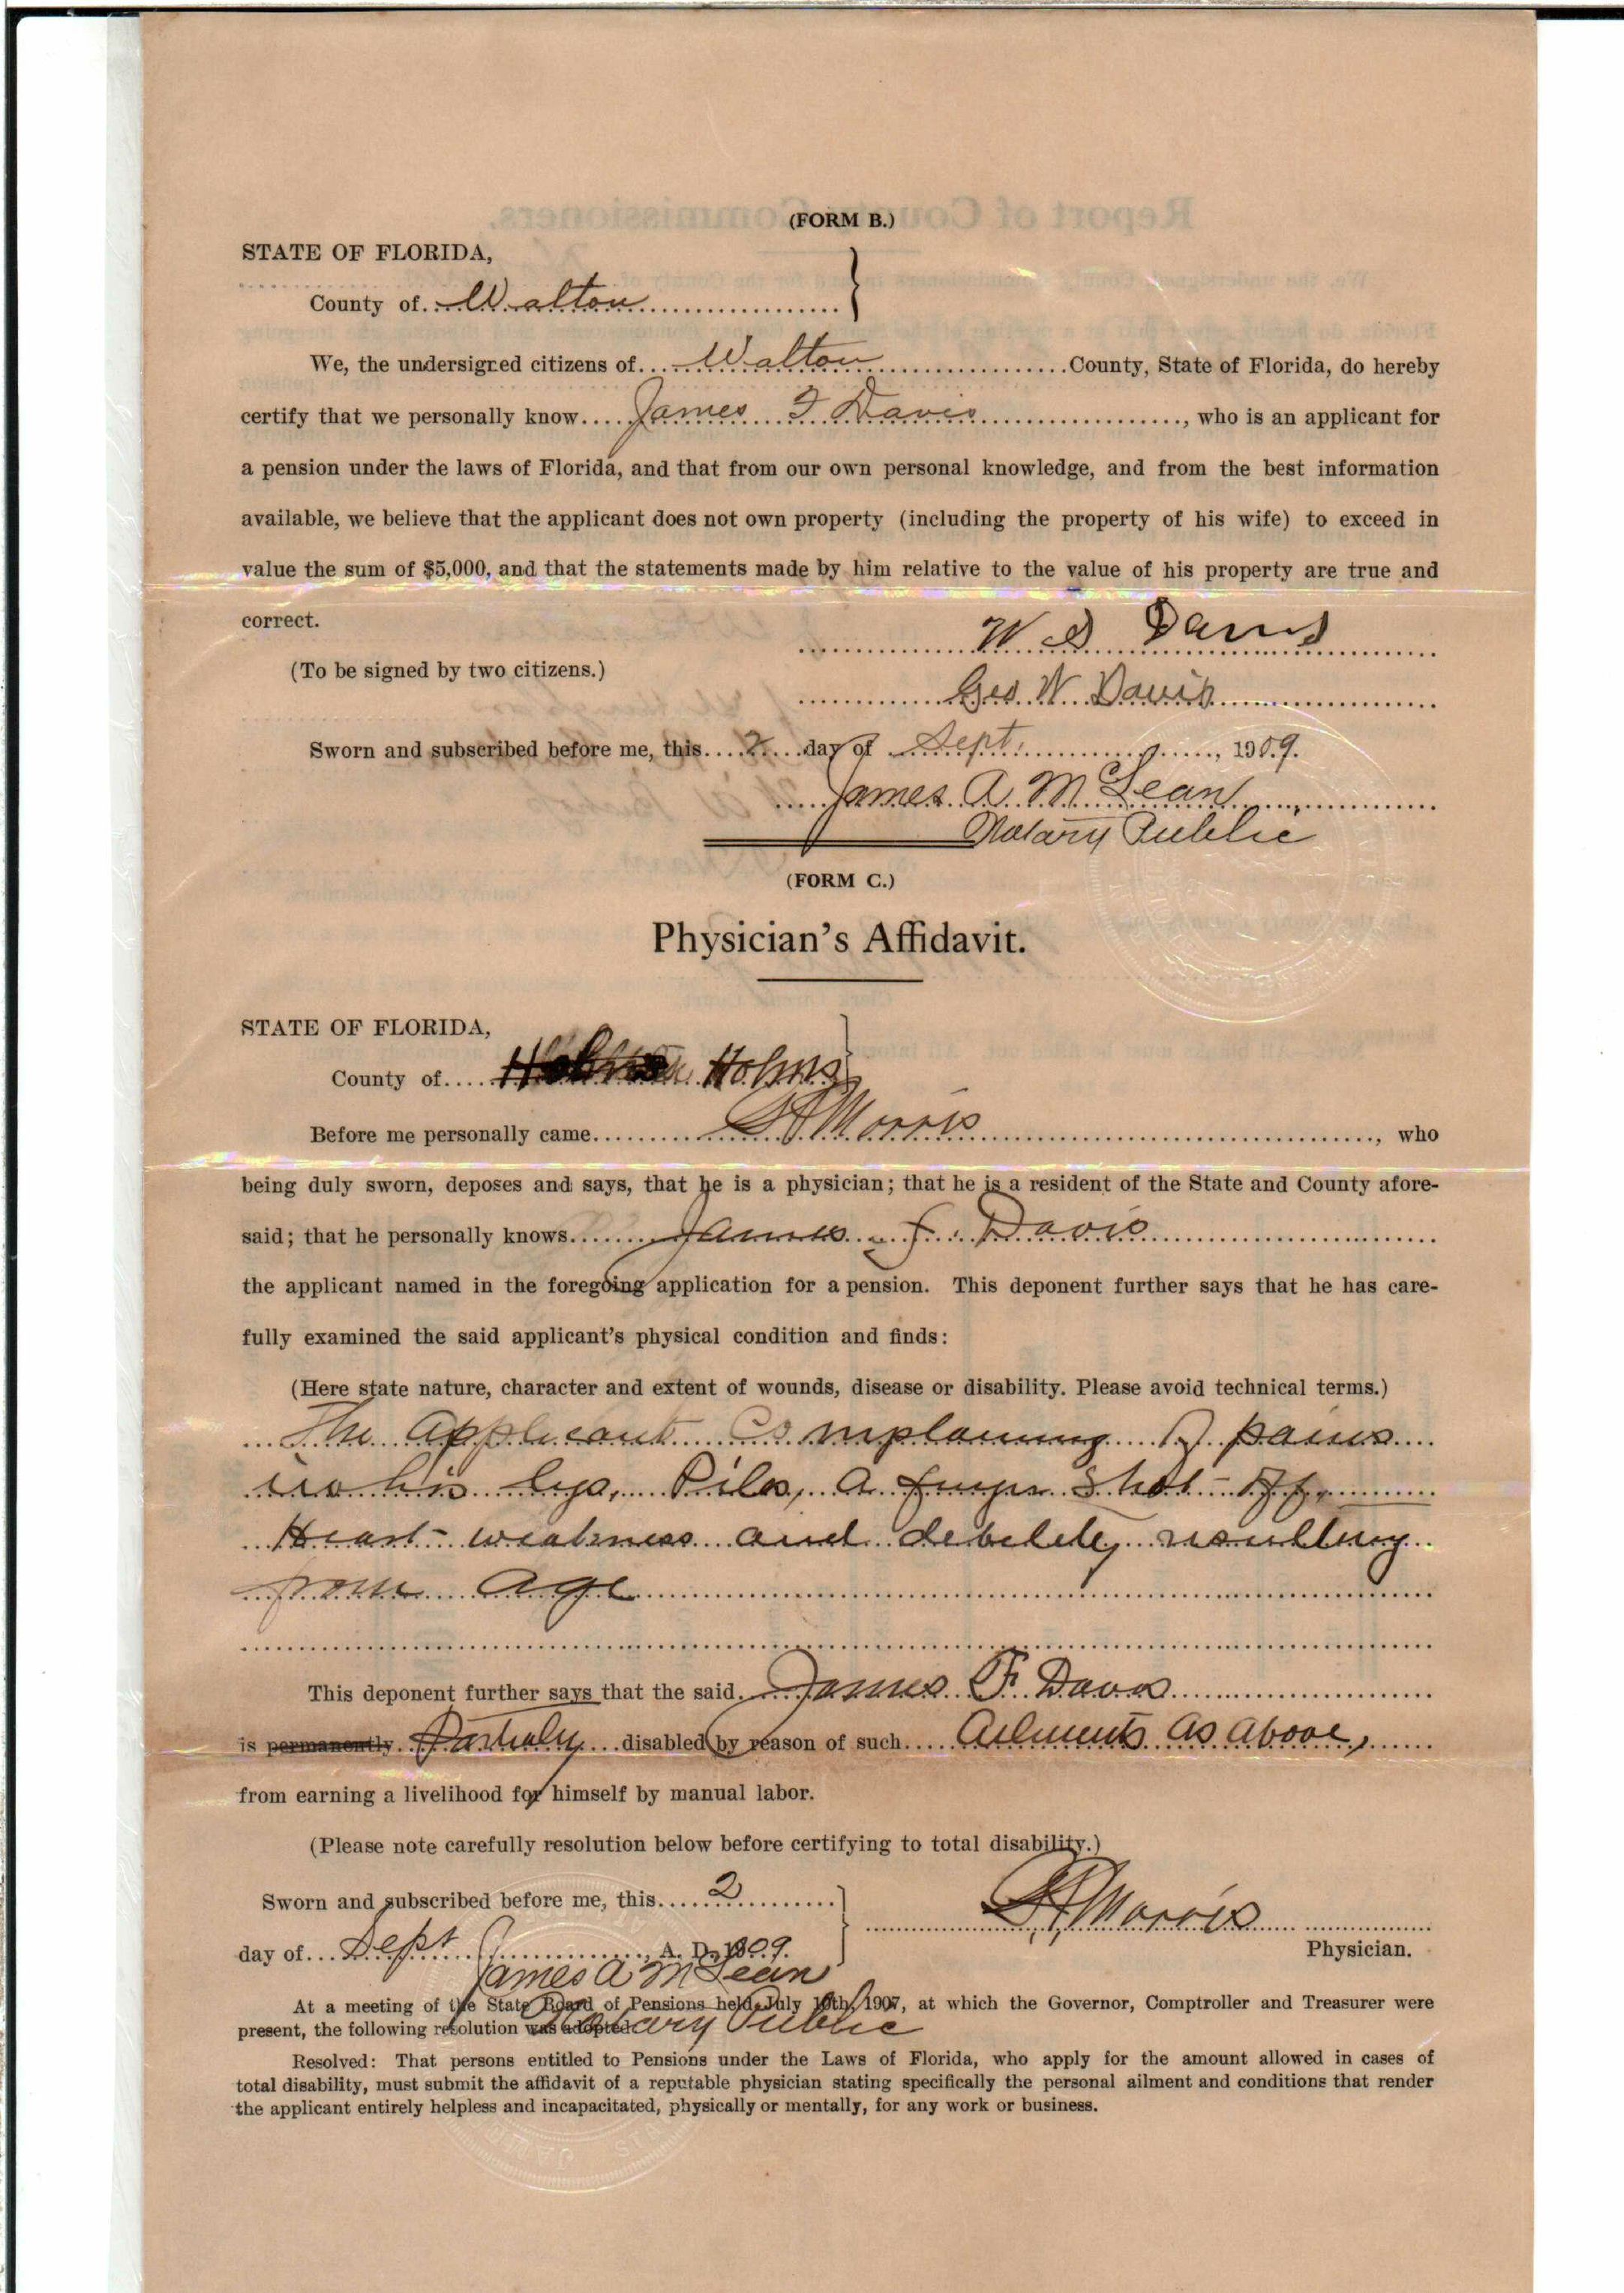 (FORM B.)
STATE OF FLORIDA,
County of Walton
We, the undersigned citizens of Walton County, State of Florida, do hereby
certify that we personally know James F Davis, who is an applicant for
a pension under the laws of Florida, and that from our own personal knowledge, and from the best information
available, we believe that the applicant does not own property (including the property of his wife) to exceed in
value the sum of $5,000, and that the statements made by him relative to the value of his property are true and
correct.
W D Davis
(To be signed by two citizens.)
Geo W Davis
Sworn and subscribed before me, this 2 day of Sept, 1909.
James A McLean
Notary Public
(FORM C.)
Physician's Affidavit.
STATE OF FLORIDA,
County of Holms
Before me personally came Morris, who
being duly sworn, deposes and says, that he is a physician; that he is a resident of the State and County afore-
said; that he personally knows James F. Davis
the applicant named in the foregoing application for a pension. This deponent further says that he has care-
fully examined the said applicant's physical condition and finds:
(Here state nature, character and extent of wounds, disease or disability. Please avoid technical terms.)
The applicant Complaining of pains
in his legs, Piles, a finger shot off,
Heart weakness and debelety resulting
from age
This deponent further says that the said James F. Davis
is permanently Partialy disabled by reason of such Ailments as above,
from earning a livelihood for himself by manual labor.
(Please note carefully resolution below before certifying to total disability.)
Sworn and subscribed before me, this 2
Morris
day of Sept, A. D. 1909.
Physician.
James A McLean
Notary Public
At a meeting of the State Board of Pensions held July 10th, 1907, at which the Governor, Comptroller and Treasurer were
present, the following resolution was adopted:
Resolved: That persons entitled to Pensions under the Laws of Florida, who apply for the amount allowed in cases of
total disability, must submit the affidavit of a reputable physician stating specifically the personal ailment and conditions that render
the applicant entirely helpless and incapacitated, physically or mentally, for any work or business.